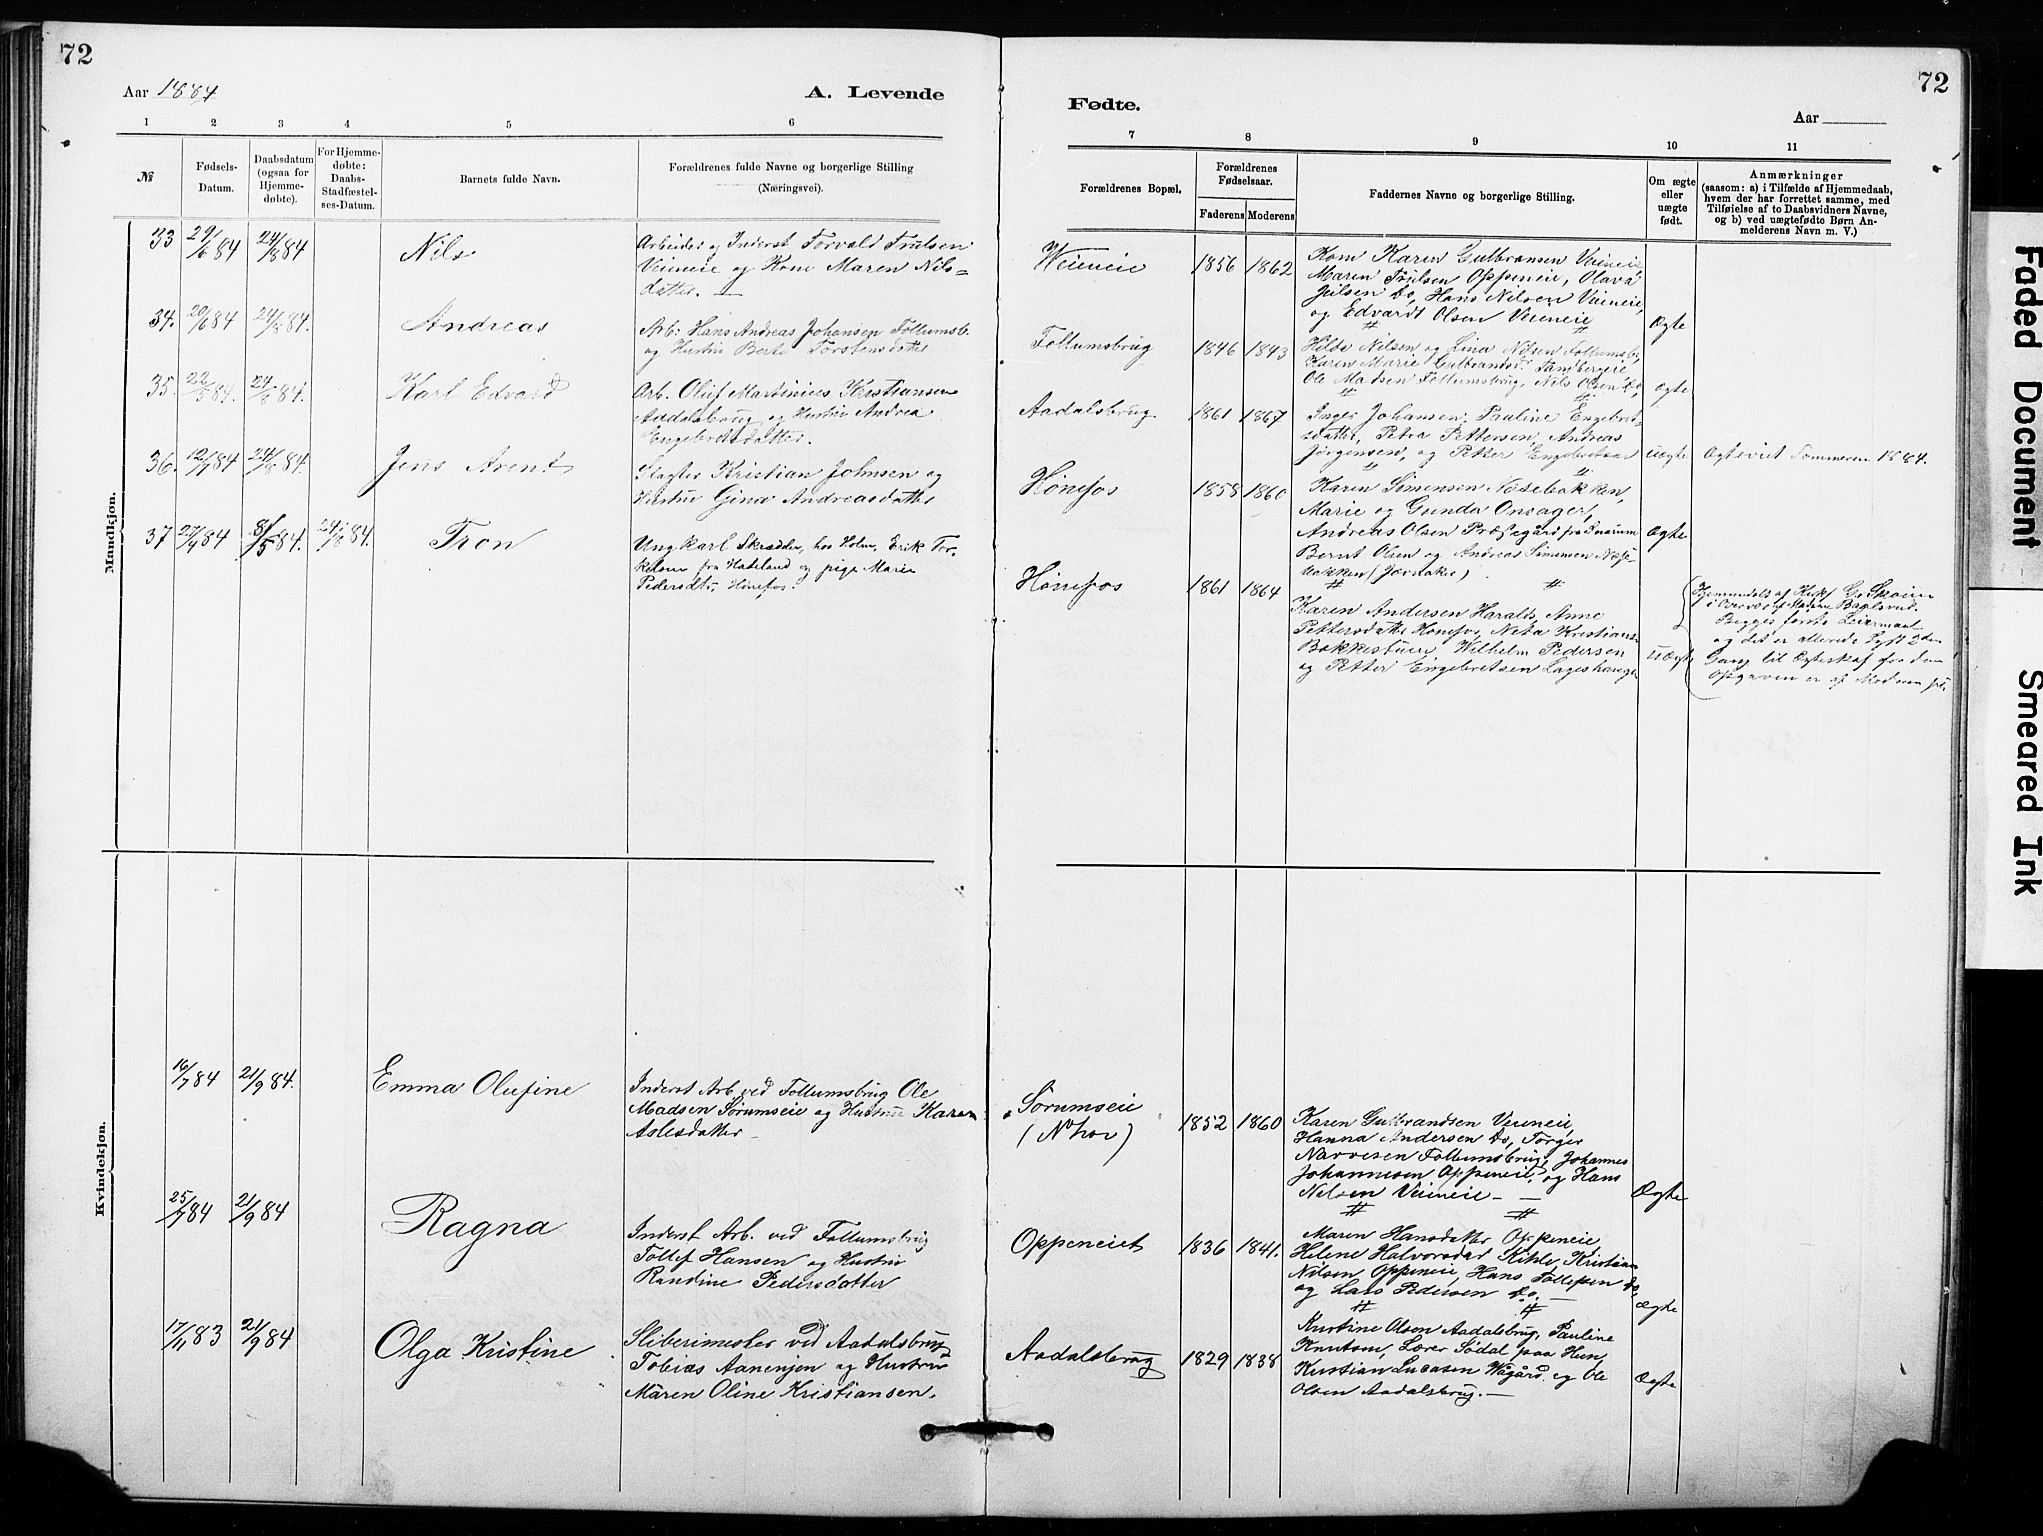 72
72
Aar 1884
A. Levende
Fødte.
Aar
1 2 3 4 5 6
7 8 9 10 11
№
Fødsels-
Datum.
Daabsdatum
(ogsaa for
Hjemme-
døbte).
For Hjemme-
døbte:
Daabs-
Stadfæstel-
ses-Datum.
Barnets fulde Navn.
Forældrenes fulde Navne og borgerlige Stilling
(Næringsvei).
Forældrenes Bopæl.
Forældrenes
Fødselsaar.
Faderens Moderens
Faddernes Navne og borgerlige Stilling.
Om ægte
eller
uægte
født.
Anmærkninger
(saasom: a) i Tilfælde af Hjemmedaab,
hvem der har forrettet samme, med
Tilføielse af to Daabsvidners Navne,
og b) ved uægtefødte Børn An-
melderens Navn m. V.)
Mandkjøn.
33 29/6 84 24/8 84 Nils
Arbeider og Inderst Torvald Trulsen
Veieneie og Kone Maren Nils=
datter. —
Veieneie 1856 1862
Kone Karen Gulbransen Veieneie
Maren Trulsen Oppeneie, Olava
Do, Hans Nilsen Veieneie,
og Edvardt Olsen Veieneie
Ægte
34. 20/6 84 24/8 84. Andreas
Arb: Hans Andreas Johansen Follumsb.
og Hustru Berte Torstensdatter
Follumsbrug 1846 1843
Hilda Nilsen og Lina Nilsen Follumsb,
Karen Marie
Ole Madsen Follumsbrug, Nils Olsen Do,
Ægte
35. 22/5 84. 24/8 84. Karl Edvard
Arb. Oluf Martinius Kristiansen
Aadalsbrug og Hustru Andrea
Engebretsdatter.
Aadalsbrug 1861 1867
Inger Johansen, Pauline Engebret-
sdatter, Petra Pettersen, Andreas
Jörgensen, og Petter Engebretsen
uægte
Ægteviet Sommeren 1884.
36. 12/7 84 24/8 84. Jens Arent
Slagter Kristian Johnsen og
Hustru Gina Andreasdatter
Hönefos 1858 1860
Karen Simensen Næsebakken,
Marie og Gunda Onsager,
Andreas Olsen Præstegård fra
Bernt Olsen og Andreas Simensen Næse-
bakken (Jevnaker)
Ægte
37 27/4 84 8/5 84. 24/8 84. Tron
Ungkarl Skrædder, hos Holm, Erik Tor-
kelsen fra Hadeland og pige Marie
Pedersdtr, Hönefos.
Hönefos 1861 1864
Karen Andersen Harald, Anne
Pettersdatter Honefos, Neta Kristians
Bakkestuen, Wilhelm Pedersen
og Petter Engebretsen
uÆgte
Begges første Leiermaal
og det er allerede lyst 2den
Gang til Ægteskab for dem
Opgaven er af Moderen
Kvindekjøn.
16/7 84 21/9 84. Emma Olufine
Inderst Arb. ved Follumsbrug Ole
Madsen Sørumseie og Hustru Karen
Aslesdatter —
Sørumseie
(N'hov)
1852 1860
Karen Gulbrandsen Veieneie,
Hanna Andersen Do, Torger
Narvesen Follumsbrug, Johannes
Johannesen Oppeneie, og Hans
Nilsen Veieneie —
Ægte
25/7 84 21/9 84 Ragna
Inderst Arb. ved Follumsbrug
Tollef Hansen og Hustru
Randine Pedersdatter
Oppeneiet 1836 1841.
Maren Hansdatter Oppeneie
Helene Halvorsdat Kihle, Kristian
Nilsen Oppeneie, Hans Tollefsen Do,
og Lars Pedersen Do. —
Ægte
17/11 83 21/9 84 Olga Kristine
Sliberimester ved Aadalsbrug
Tobias Aanensen og Hustru
Maren Oline Kristiansen.
Aadalsbrug 1829 1838
Kristine Olsen Aadalsbrug, Pauline
Knutson, Lærer Södal paa Hen,
Kristian Lucasen Wågård og Ole
Olsen Aadalsbrug. —
Ægte
Faded Document
Smeared Ink